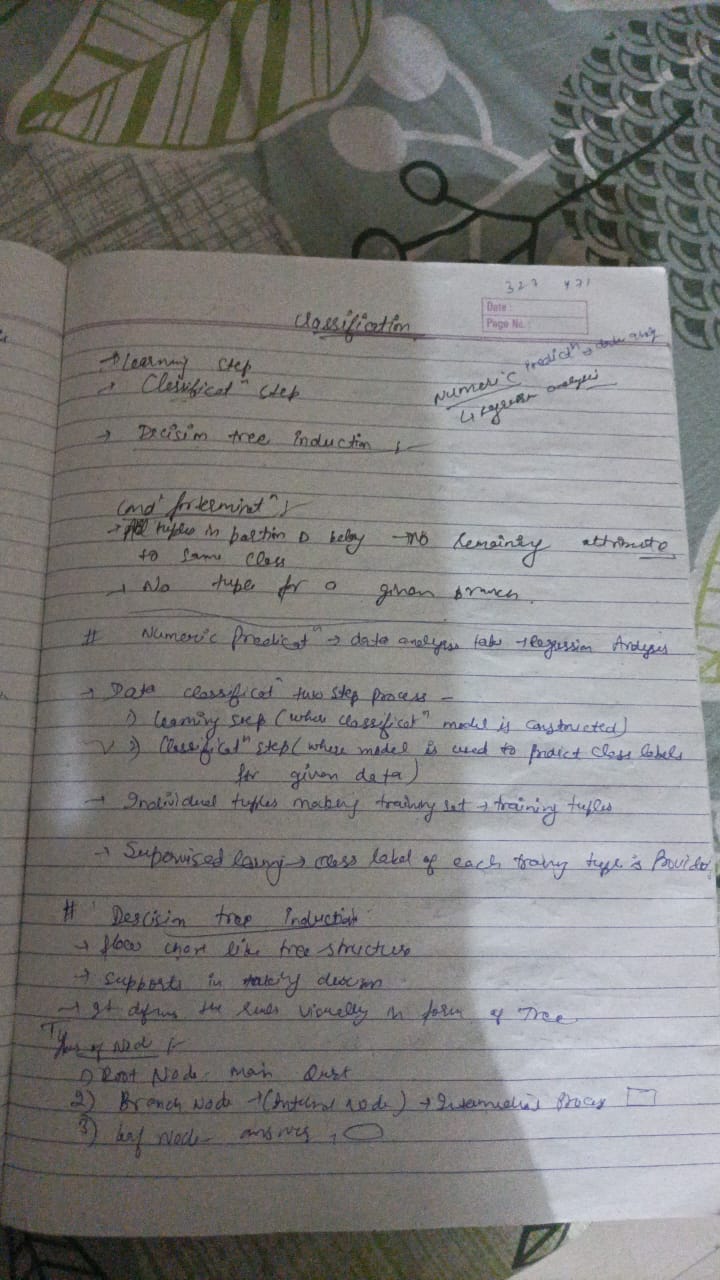 323 471
Date :
Page No.
Classification
→ Learning step
→ Classificatⁿ step
Numeric Predictⁿ → data
↳ regression analysis
→ Decision tree induction :-
Condⁿ for terminatⁿ :-
→ All tuples in partion D belong → No remaining attribute
to same class
→ No tuple for a given branch.
# Numeric Predicatⁿ → data analyses take → Regression Analysis
→ Data classificatⁿ two step process -
1) Learning step (where classificatⁿ model is constructed)
2) Classificatⁿ step (where model is used to predict class labels
for given data)
→ Individual tuples making training set → training tuples
→ Supervised → class label of each traing tuple is Provided
# Descision tree Induction
→ flow chart like tree structure
→ supports in taking decison
→ It defines the rules visually in form of Tree
Types of Node :-
1) Root Node - main Quest
2) Branch Node → (Internal node) → Intermediate Process
3) leaf Node - answer